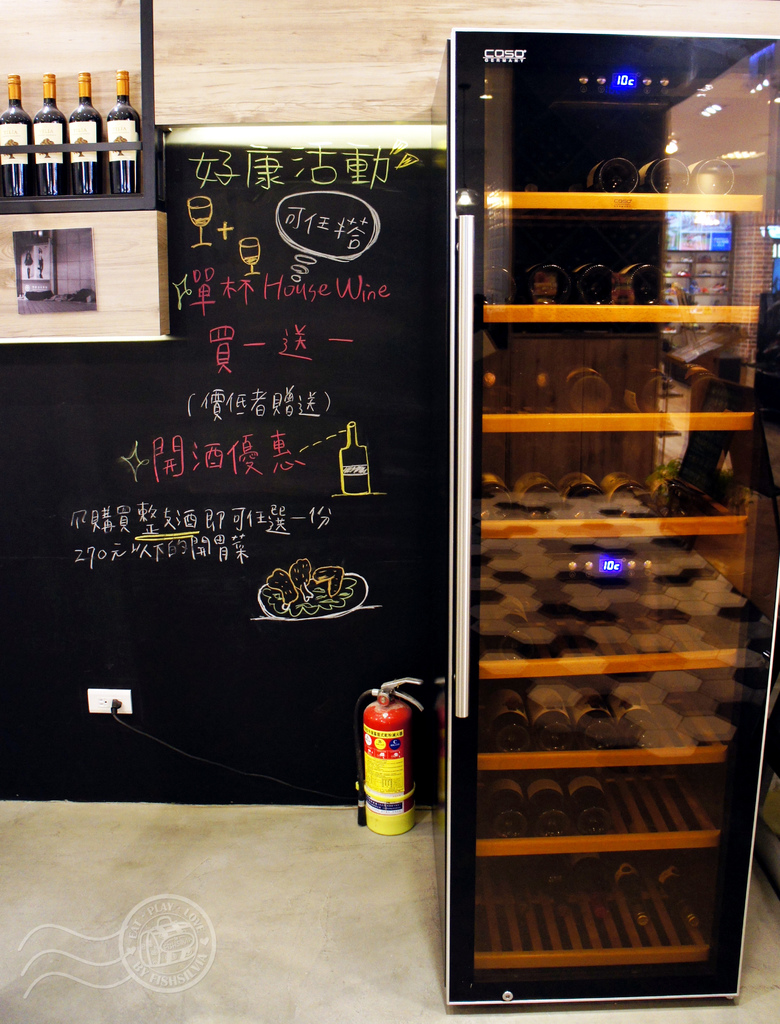 COSO
GERMANY
10c
好康活動
可任搭
+
單杯 House Wine
買一送一
(價低者贈送)
開酒優惠
凡購買整支酒即可任選一份
270元以下的開胃菜
10c
EAT PLAY LOVE
BY FISHSILVIA